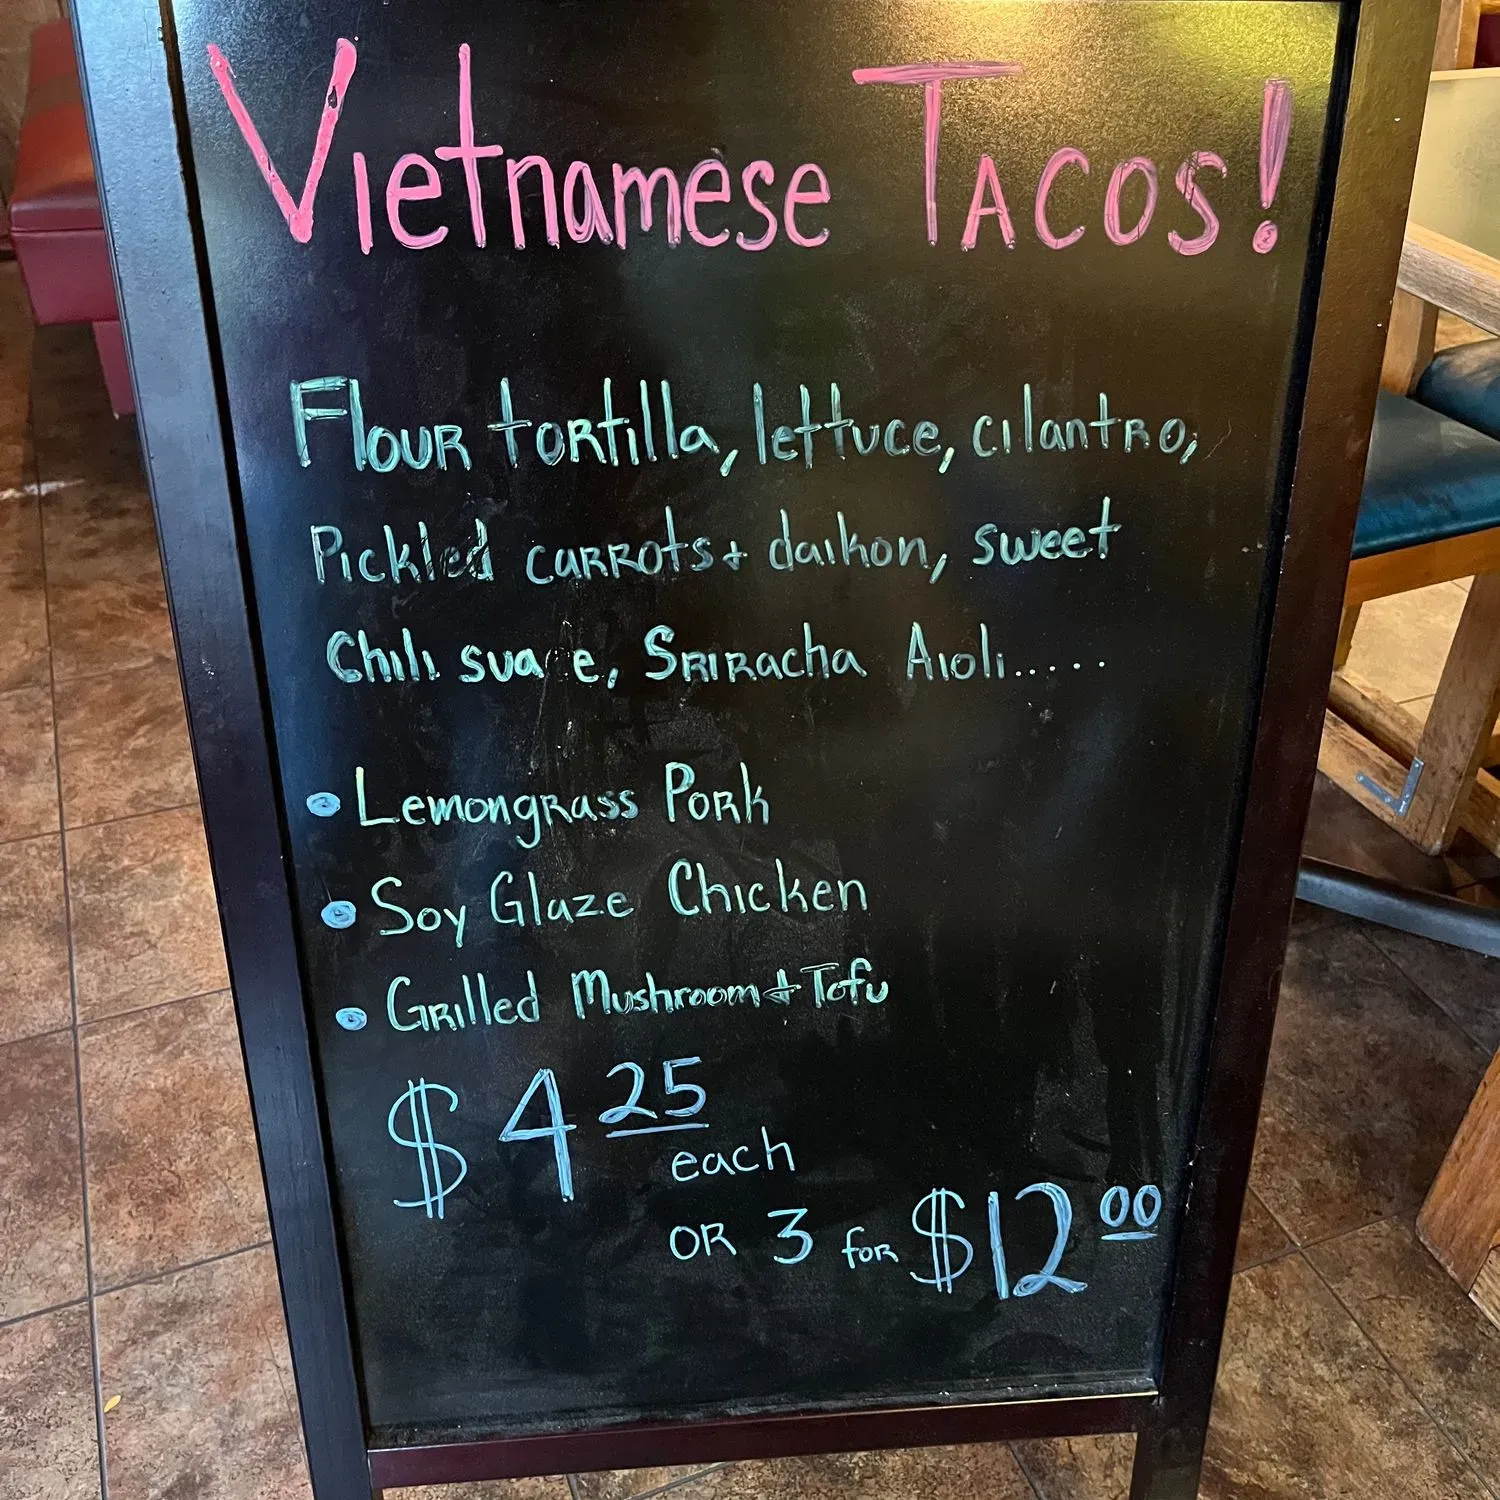 Vietnamese Tacos!
Flour tortilla, lettuce, cilantro,
Pickled carrots + daikon, sweet
Chili sua e, Sriracha Aioli.....
• Lemongrass Pork
• Soy Glaze Chicken
• Grilled Mushroom + Tofu
$4 25
each
OR 3 for $12 00